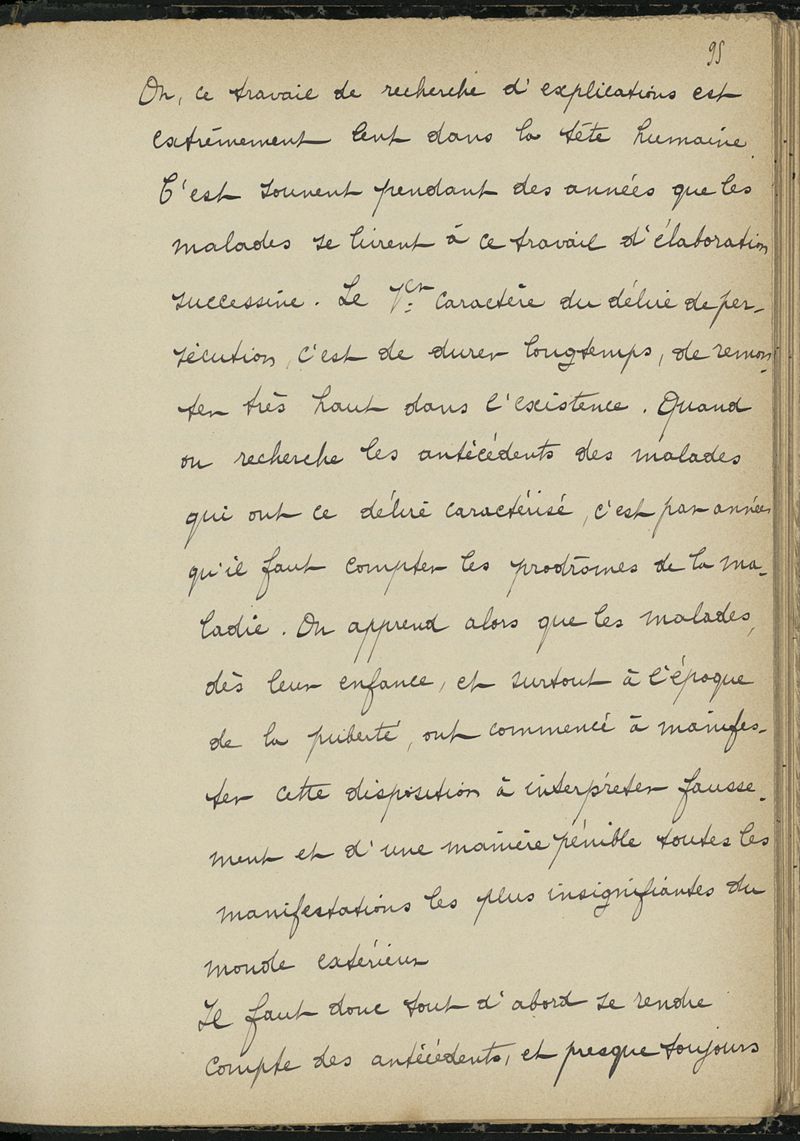 95
Or, ce travail de recherche d'explications est
extrêmement lent dans la tête humaine.
C'est souvent pendant des années que les
malades se livrent à ce travail d'élaboration
successive. Le 1er caractère du délire de per-
sécution, c'est de durer longtemps, de remon-
ter très haut dans l'existence. Quand
on recherche les antécédents des malades
qui ont ce délire caractérisé, c'est par années
qu'il faut compter les prodromes de la ma-
ladie. On apprend alors que les malades,
dès leur enfance, et surtout à l'époque
de la puberté, ont commencé à manifes-
ter cette disposition à interpréter fausse-
ment et d'une manière pénible toutes les
manifestations les plus insignifiantes du
monde extérieur
Il faut donc tout d'abord se rendre
compte des antécédents, et presque toujours